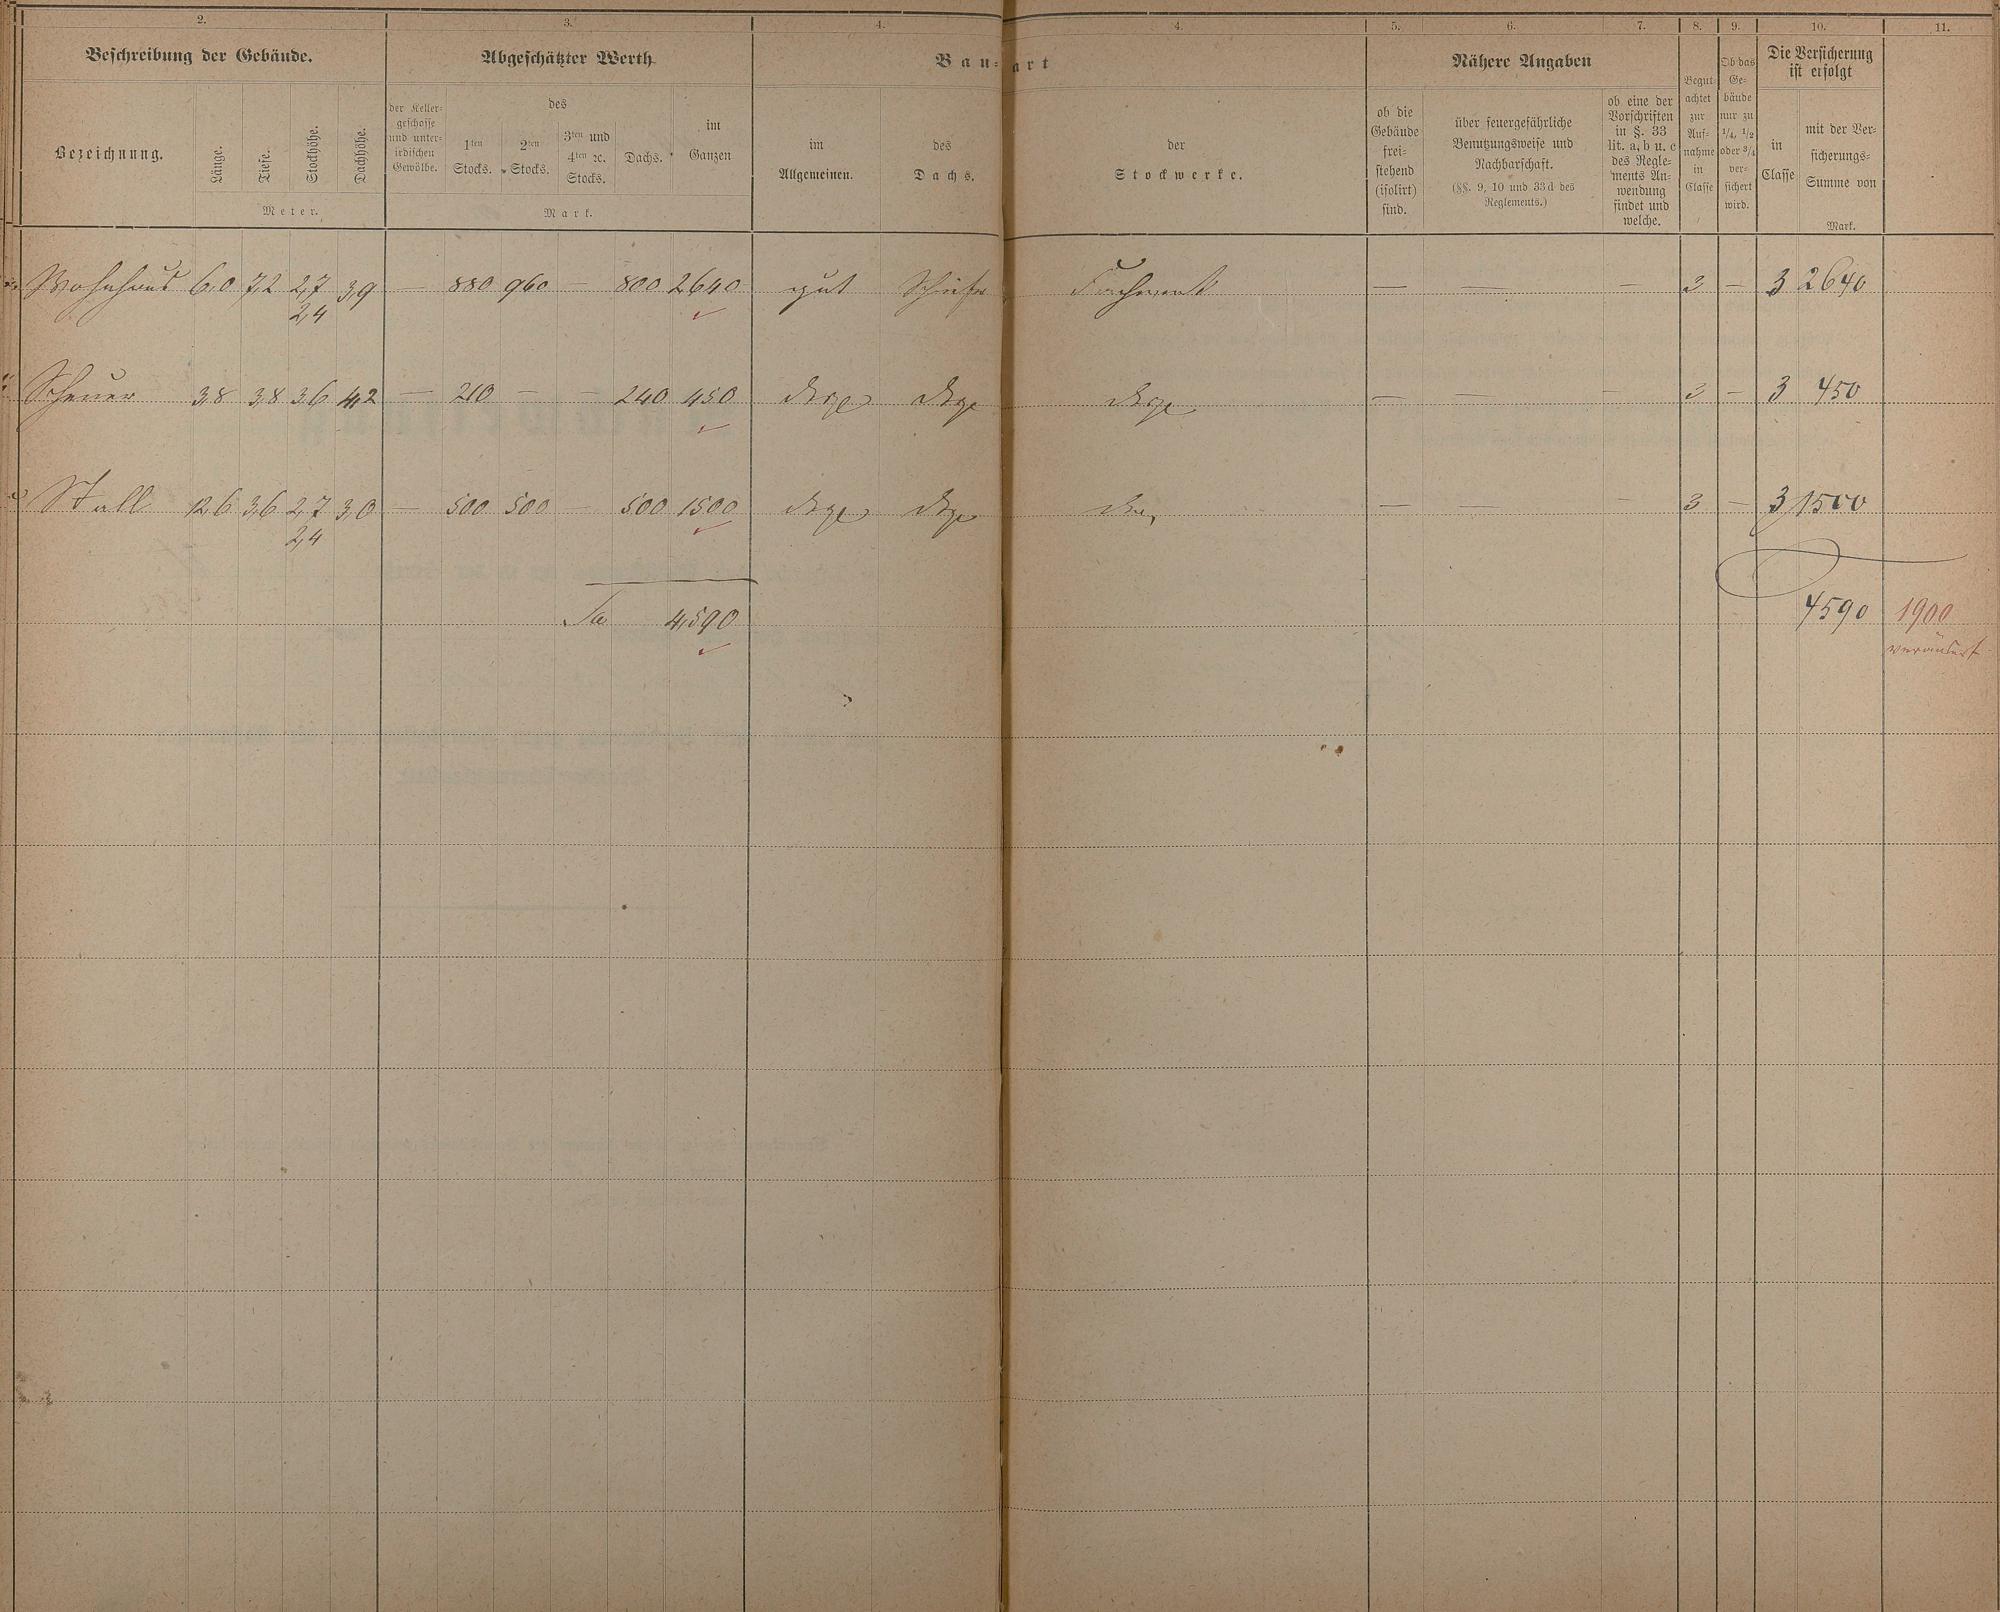 2. 3. 4. 4. 5. 6. 7. 8. 9. 10. 11.
Beschreibung der Gebäude. Abgeschätzter Werth Bau- art Nähere Angaben Die Versicherung ist erfolgt
Bezeichnung. Länge. Tiefe. Stockhöhe. Dachhöhe.
Meter.
der Keller-
geschosse
und unter-
irdischen
Gewölbe.
des
1ten Stocks. 2ten Stocks. 3ten und 4ten ec. Stocks. Dachs.
im Ganzen
Mark.
im Allgemeinen.
des Dachs.
der Stockwerke.
ob die
Gebäude
frei-
stehend
(isolirt)
sind.
über feuergefährliche
Benutzungsweise und
Nachbarschaft.
(§§. 9, 10 und 33d des
Reglements.)
ob eine der
Vorschriften
in §. 33
lit. a, b u. c
des Regle-
ments An-
wendung
findet und
welche.
Begut-
achtet
zur
Auf-
nahme
in
Classe
Ob das
Ge-
bäude
nur zu
1/4, 1/2
oder 3/4
ver-
sichert
wird.
in Classe
mit der Ver-
sicherungs-
Summe von
Mark.
Wohnhaus 6,0 7,2 2,7 3,9 — 880 960 — 800 2640 gut Schiefer Fachwerk — — — 3 — 3 2640
2,4
Scheuer 3,8 3,8 3,6 4,2 — 210 — — 240 450 dsge dsge dsge — — — 3 — 3 450
Stall 12,6 3,6 2,7 3,0 — 500 500 — 500 1500 dsge dsge — — — 3 — 3 1500
2,4
Sa 4,590 4590 1900
verändert